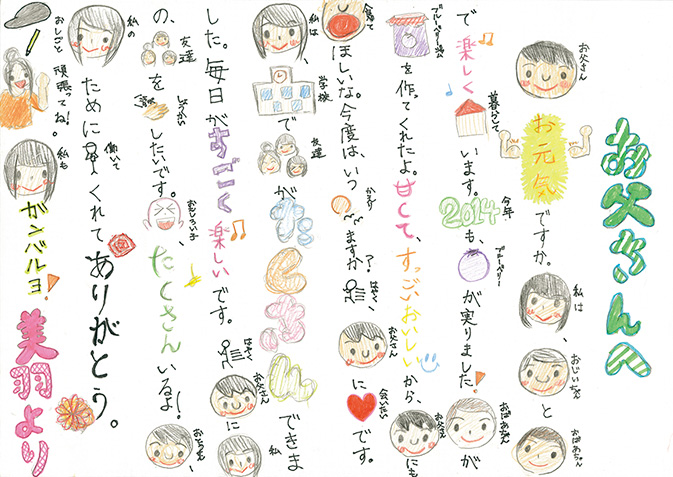 お父さんへ
お父さん お元気ですか。私は、おじいちゃんとおばあちゃん
で楽しく暮らしています。今年2014も、ブルーベリーが実りました。おばあちゃんが
を作ってくれたよ。甘くて、すっごいおいしいから、お父さんにも
食べてほしいな。今度は、いつますか？はやくお父さんに会いたいです。
私は、学校で友達がたくさんできま
した。毎日がすごーく楽しいです。はやくお父さんに私
の、友達をしょうかいしたいです。おもしろい子、たくさんいるよ！お父さん、
私のために働いてくれてありがとう。
おしごと頑張ってね！私もガンバルヨ
美羽より